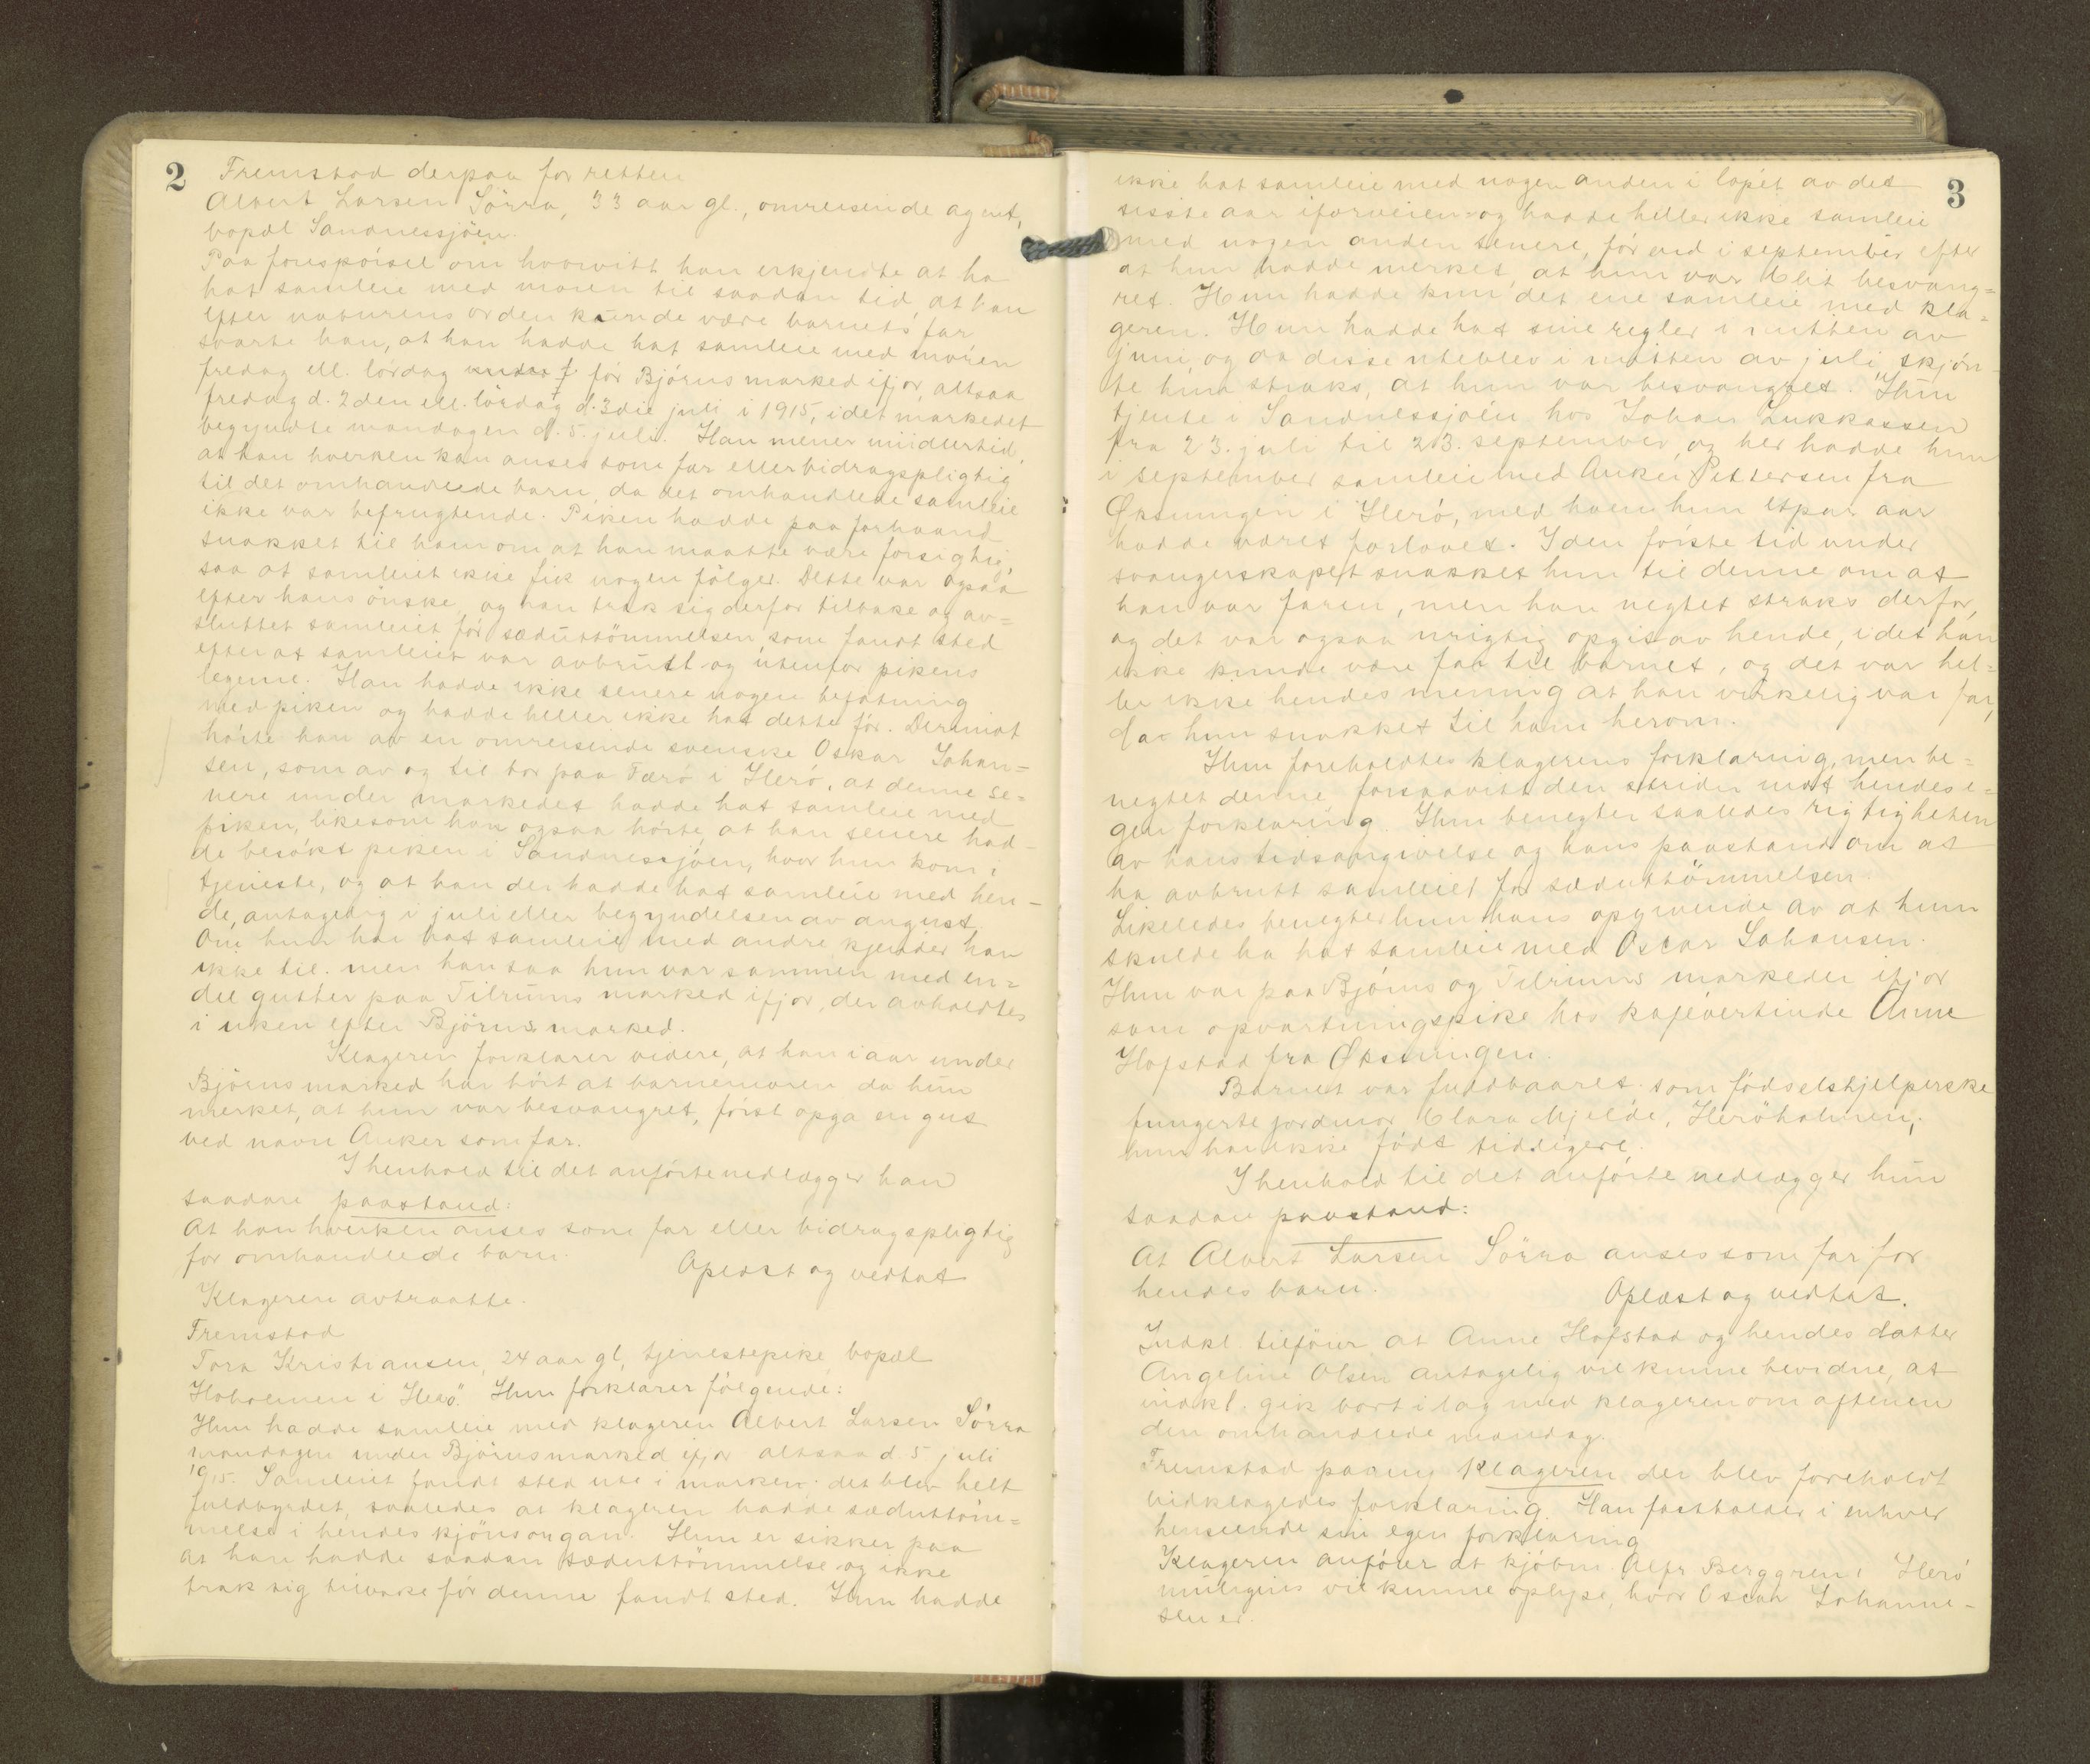 2
Fremstod derpaa for retten
Albert Larsen Sörra, 33 aar gl., omreisende agent,
bopæl Sandnessjöen.
Paa forespörsel om hvorvitt han erkjendte, at ha
hat samleie med moren til saadan tid, at han
efter naturens orden kunde være barnets far
svarte han, at han hadde hat samleie med moren
fredag ell. lördag för Björns marked ifjor, altsaa
fredag d. 2den ell. lördag d. 3die juli i 1915, idet markedet
begyndte mandagen d. 5. juli. Han mener imidlertid,
at han hverken kan anses som far eller bidragspligtig
til det omhandlede barn, da det omhandlede samleie
ikke var befrugtende. Piken hadde paa forhaand
snakket til ham om at han maatte være forsigtig,
saa at samleiet ikke fik nogen fölger. Dette var ogsaa
efter hans önske, og han trak sig derfor tilbake og av=
sluttet samleiet för sæduttömmelsen, som fandt sted
efter at samleiet var avbrutt og utenfor pikens
legeme. Han hadde ikke senere nogen befatning
med piken og hadde heller ikke hat dette för. Derimot
hörte han av en omreisende svenske Oskar Johan=
sen, som av og til bor paa Færö i Herö, at denne se=
nere under markedet hadde hat samleie med
piken, likesom han ogsaa hörte, at han senere had-
de besökt piken i Sandnessjöen, hvor hun kom i
tjeneste, og at han der hadde hat samleie med hen-
de, antagelig i juli eller begyndelsen av august.
Om hun har hat samleie med andre kjender han
ikke til. men han saa hun var sammen med en=
del gutter paa Tilrums marked ifjor, der avholdtes
i uken efter Björns marked.
Klageren forklarer videre, at han i aar under
Björns marked har hört at barnemoren da hun
merket, at hun var besvangret, först opga en gut
ved navn Anker som far.
I henhold til det anförte nedlægger han
saadan paastand:
At han hverken anses som far eller bidragspligtig
for omhandlede barn.
Oplæst og vedtat
Klageren avtraatte.
Fremstod
Tora Kristiansen, 24 aar gl, tjenestepike, bopæl
i Herö. Hun forklarer fölgende:
Hun hadde samleie med klageren Albert Larsen Sörra
mandagen under Björnsmarked ifjor altsaa d 5 juli
1915. Samleiet fandt sted ute i marken; det blev helt
fuldbyrdet, saaledes at klageren hadde sæduttöm=
melse i hendes kjönsorgan. Hun er sikker paa
at han hadde saadan sæduttömmelse og ikke
trak sig tilbake för denne fandt sted. Hun hadde
3
ikke hat samleie med nogen anden i löpet av det
siste aar iforveien og hadde heller ikke samleie
med nogen anden senere, för end i september efter
at hun hadde merket, at hun var blit besvang=
ret. Hun hadde kun det ene samleie med kla=
geren. Hun hadde hat sine regler i mitten av
juni, og da disse uteblev i mitten av juli, skjön-
te hun straks, at hun var besvangret. Hun
tjente i Sandnessjöen hos Johan Lukkassen
fra 23. juli til 23. september, og her hadde hun
i september samleie med Anker Pettersen fra
Øksningen i Herö, med hvem hun etpar aar
hadde været forlovet. I den förste tid under
svangerskapet snakket hun til denne om at
han var faren, men han negtet straks derfor,
og det var ogsaa urigtig opgit av hende, idet han
ikke kunde være far til barnet, og det var hel=
ler ikke hendes mening at han virkelig var far,
da hun snakket til ham herom.
Hun foreholdtes klagerens forklaring, men be=
negtet denne forsaavitt den strider mot hendes e=
gen forklaring. Hun benegter saaledes rigtigheten
av hans tidsangivelse og hans paastand om at
ha avbrutt samleiet för sæduttömmelsen.
Likeledes benegter hun hans opgivende av at hun
skulde ha hat samleie med Oscar Johansen.
Hun var paa Björns og Tilrums markeder ifjor
som opvartningspike hos kaféværtinde Anne
Hofstad fra Øksningen.
Barnet var fuldbaaret. som födselshjelperske
fungerte jordmor Clara Mjelde, Heröholmen;
hun har ikke födt tidligere.
I henhold til det anförte nedlægger hun
saadan paastand:
At Albert Larsen Sörra anses som far for
hendes barn.
Oplæst og vedtat.
Indkl. tilföier, at Anne Hofstad og hendes datter
Angeline Olsen antagelig vil kunne bevidne, at
indkl. gik bort i lag med klageren om aftenen
den omhandlede mandag.
Fremstod paany klageren der blev foreholdt
indklagedes forklaring. Han fastholder i enhver
henseende sin egen forklaring
Klageren anförer at kjöbm. Alfr Berggren i Herö
muligens vil kunne oplyse, hvor Oscar Johanne-
sen er.